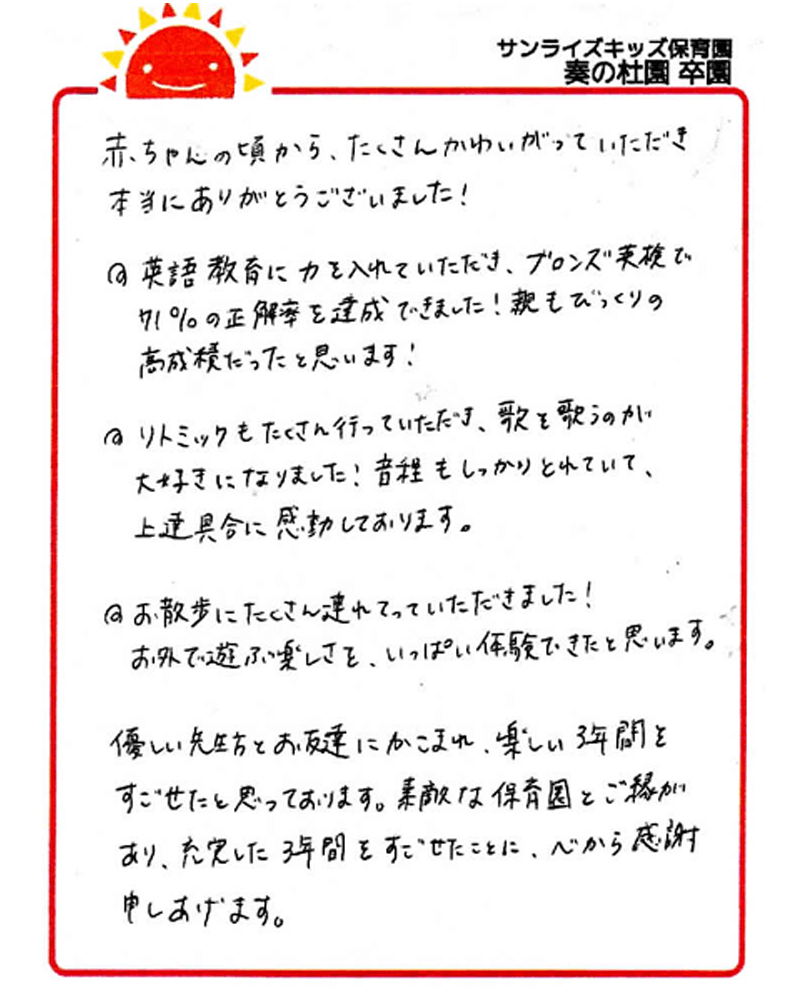 サンライズキッズ保育園
奏の杜園 卒園
赤ちゃんの頃から、たくさんかわいがっていただき
本当にありがとうございました!
英語教育に力を入れていただき、ブロンズ英検で
71%の正解率を達成できました!親もびっくりの
高成積だったと思います!
リトミックもたくさん行っていただき、歌を歌うのが
大好きになりました!音程もしっかりとれていて、
上達具合に感動しております。
お散歩にたくさん連れてっていただきました!
お外で遊ぶ楽しさを、いっぱい体験できたと思います。
優しい先生方とお友達にかこまれ、楽しい3年間を
すごせたと思っております。素敵な保育園とご縁が
あり、充実した3年間をすごせたことに、心から感謝
申しあげます。